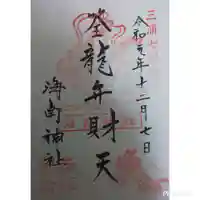 三浦七
令和元年十二月七日
筌龍弁財天
海南神社